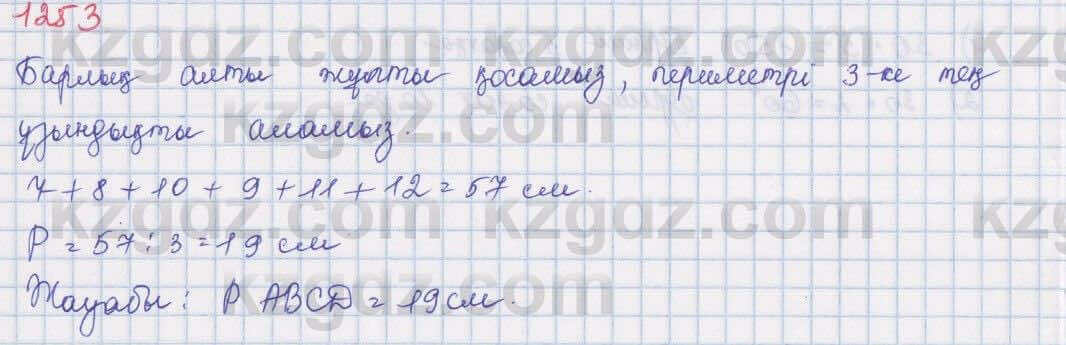 1253
Барлық алты жұпты қосамыз, периметрі 3-ке тең
ұзындықты аламыз.
7 + 8 + 10 + 9 + 11 + 12 = 57 см.
P = 57 : 3 = 19 см
Жауабы: P ABCD = 19 см.
kzgdz.com
kzgdz.com
kzgdz.com
kzgdz.com